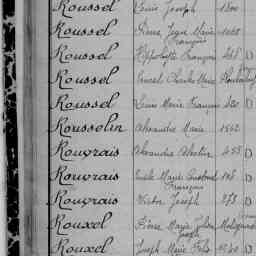 Roussel Louis Joseph 1800
Roussel Pierre Jean Marie
François
Roussel Hippolyte François 248 D
Roussel Ernest Charles Marie
Roussel Louis Marie François 480 D
Rousselin Alexandre Marie 1842
Rouvrais Alexandre Celestin 455 D
Rouvrais Emile Marie
François D
Rouvrais Victor Joseph 273 D
Rouxel Pierre Marie Julien
Joseph
Rouxel Joseph Marie Felix D